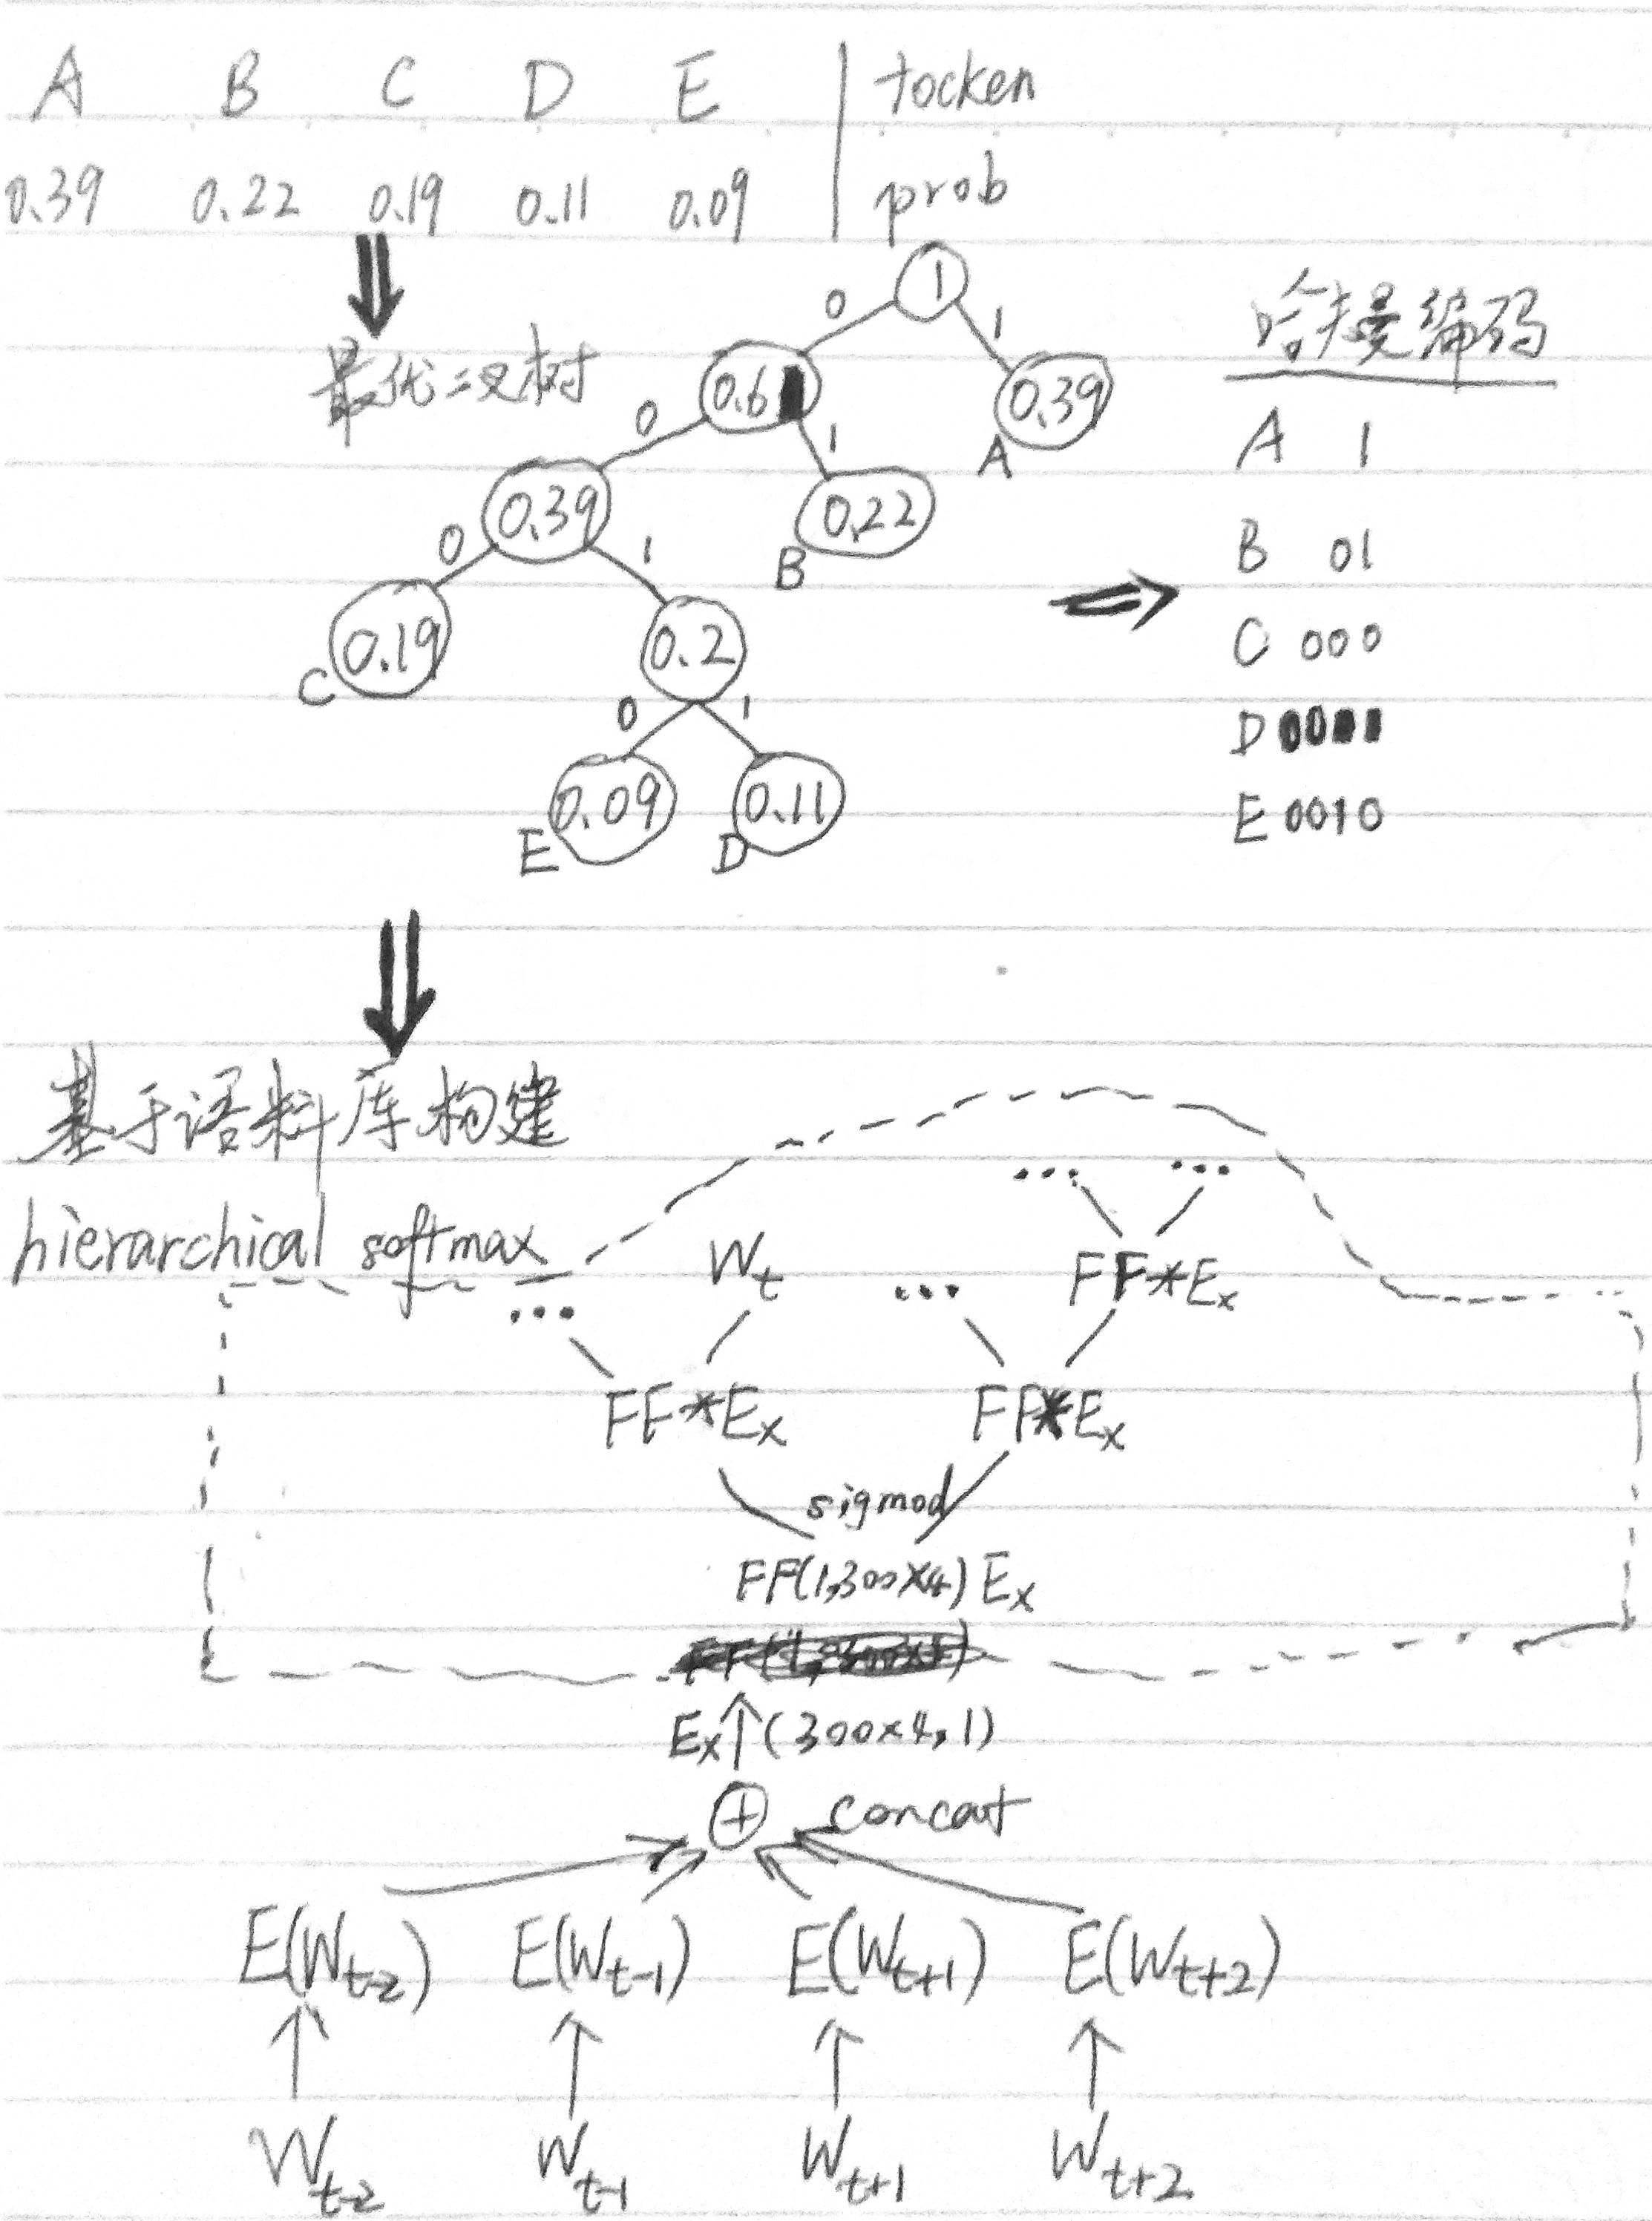 A B C D E tocken
0.39 0.22 0.19 0.11 0.09 prob
最优二叉树
哈夫曼编码
1
0 1
0.6
0.39
A
0 1
0.39
0.22
B
0 1
0.19
C
0.2
0 1
0.09
E
0.11
D
A 1
B 01
C 000
D 00
E 0010
基于语料库构建
hierarchical softmax
... ...
... Wt ... FF*Ex
FF*Ex FF*Ex
sigmod
FF(1,300×4) Ex
Ex (300×4,1)
+ concat
E(Wt-2) E(Wt-1) E(Wt+1) E(Wt+2)
Wt-2 Wt-1 Wt+1 Wt+2